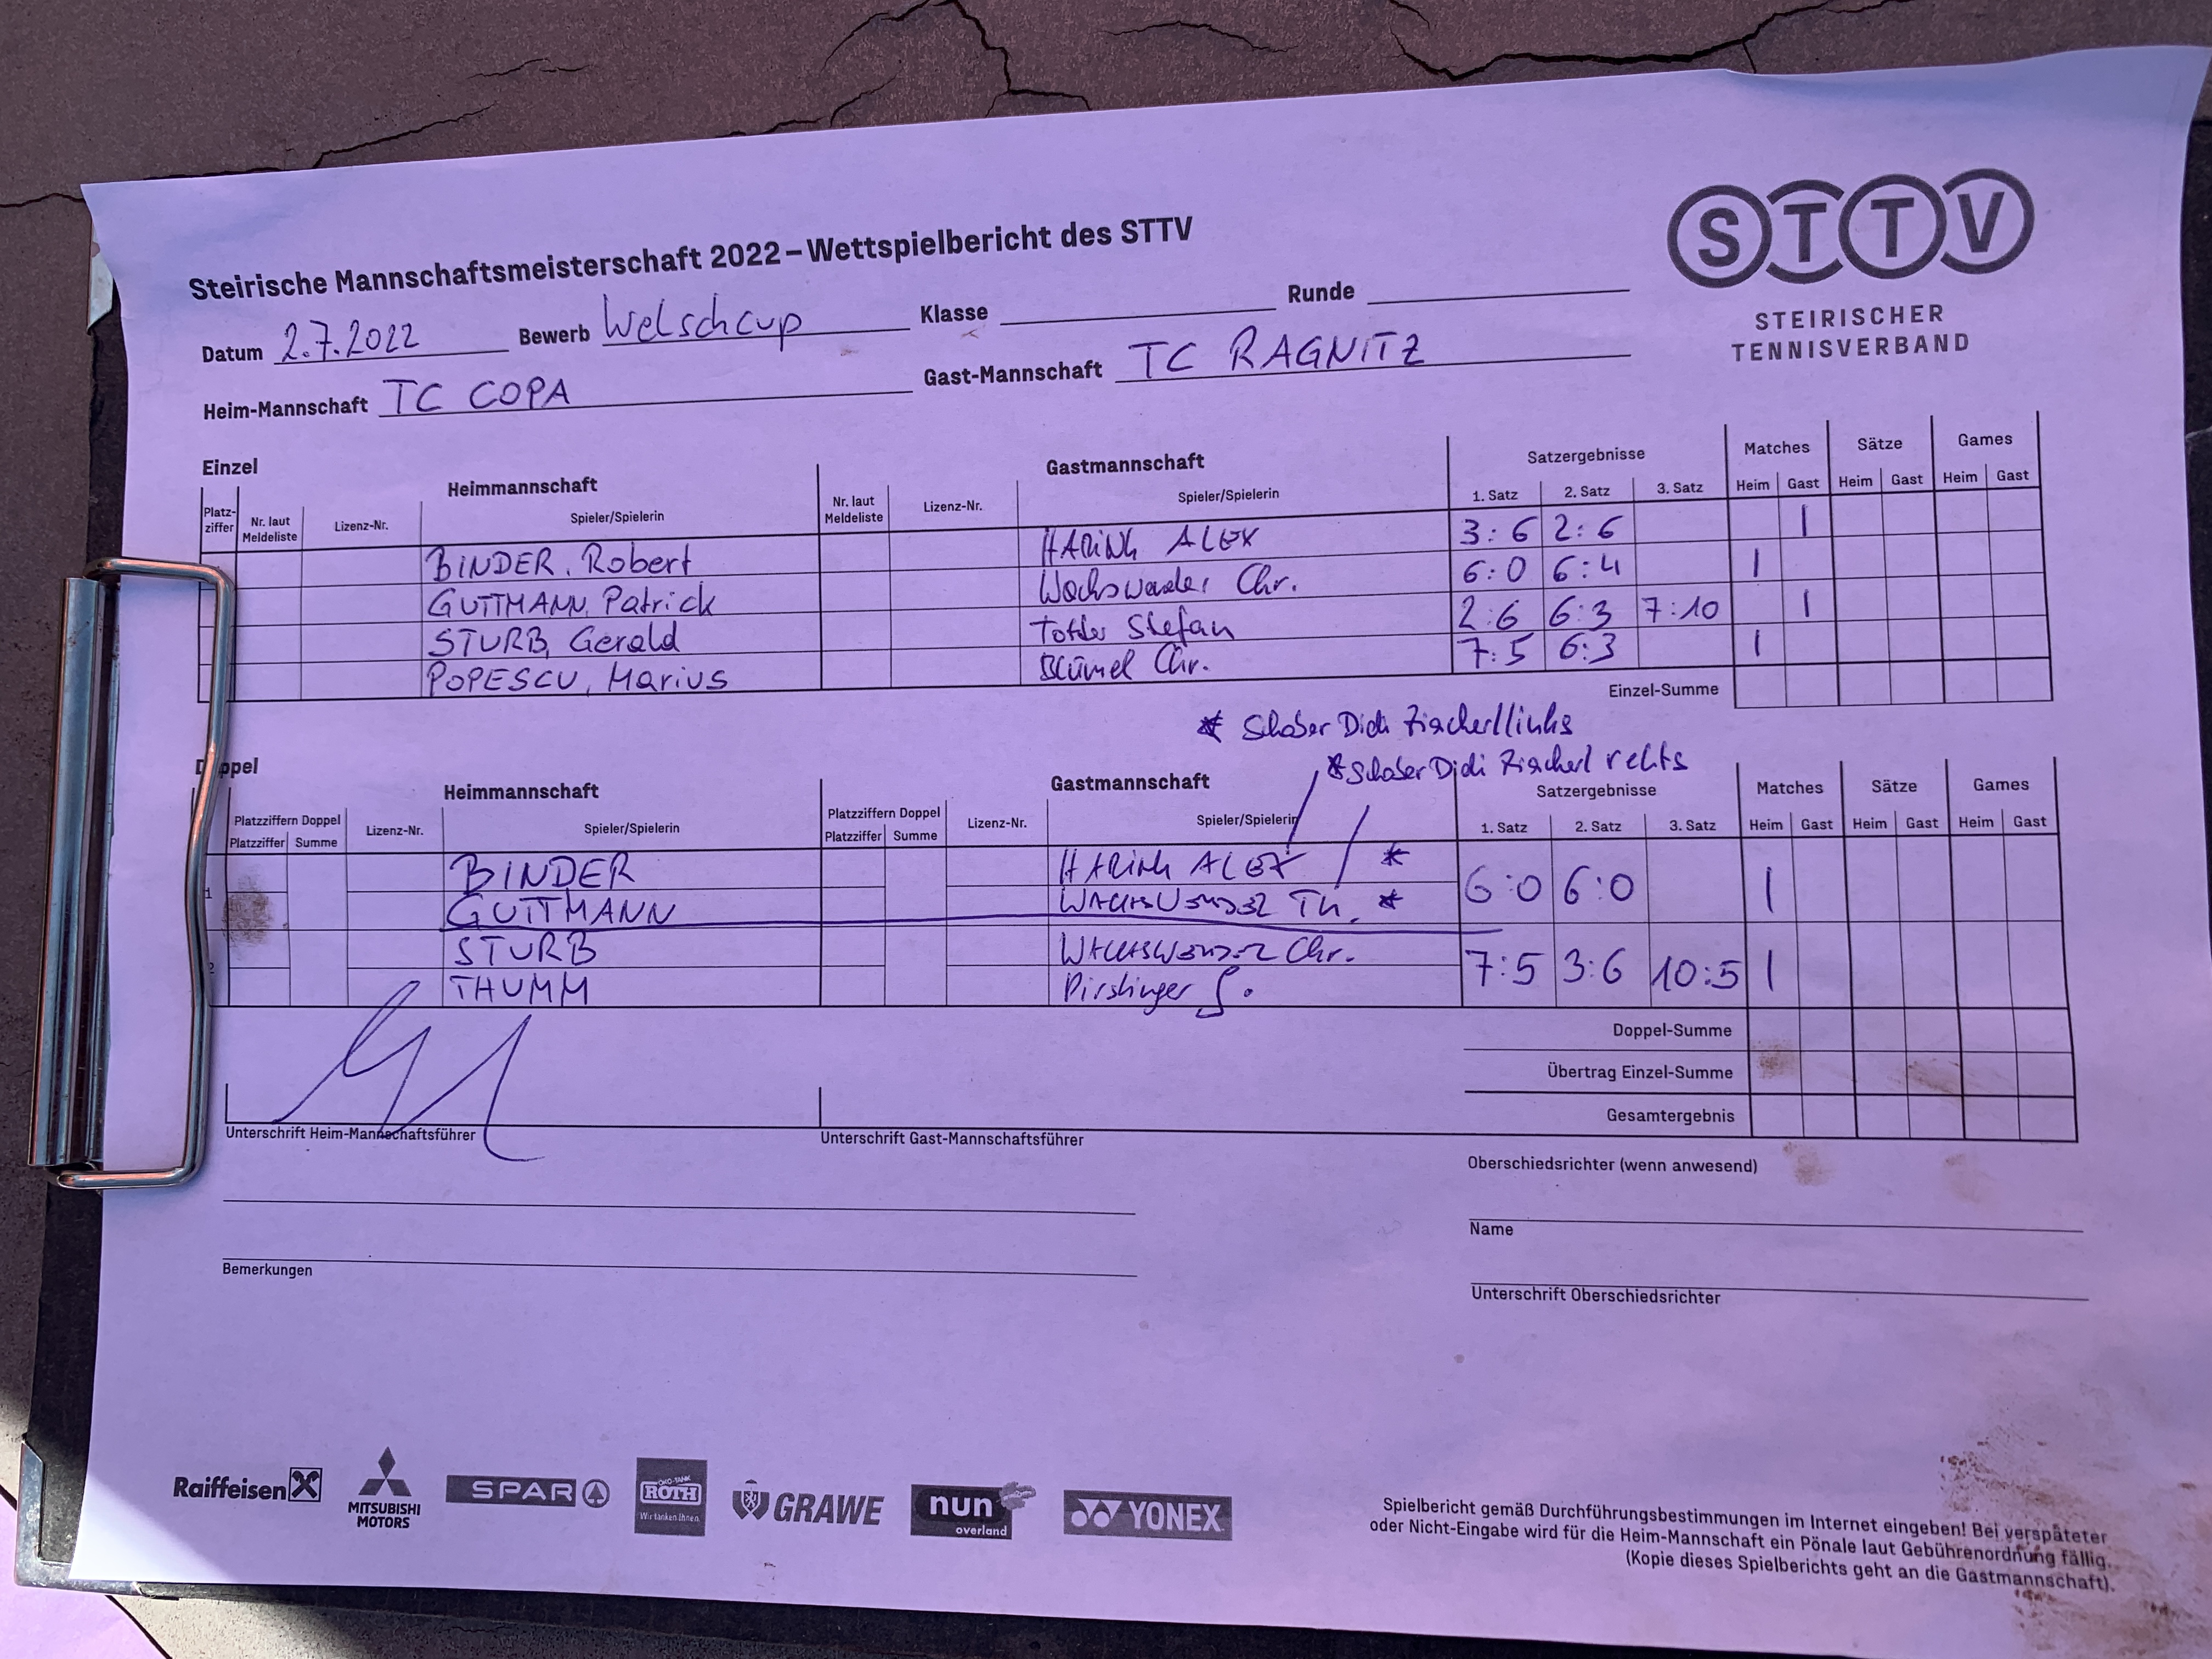 Steirische Mannschaftsmeisterschaft 2022 – Wettspielbericht des STTV
STTV
STEIRISCHER
TENNISVERBAND
Datum 2.7.2022 Bewerb Welschcup Klasse Runde
Heim-Mannschaft TC COPA Gast-Mannschaft TC RAGNITZ
Einzel Heimmannschaft Gastmannschaft Satzergebnisse Matches Sätze Games
Platz-ziffer Nr. laut Meldeliste Lizenz-Nr. Spieler/Spielerin Nr. laut Meldeliste Lizenz-Nr. Spieler/Spielerin 1. Satz 2. Satz 3. Satz Heim Gast Heim Gast Heim Gast
BINDER, Robert HARING ALEX 3:6 2:6 1
GUTTMANN, Patrick Chr. 6:0 6:4 1
STURB, Gerald Stefan 2:6 6:3 7:10 1
POPESCU, Marius Blümel Chr. 7:5 6:3 1
Einzel-Summe
* Schober Didi links
* Schober Didi rechts
Doppel Heimmannschaft Gastmannschaft Satzergebnisse Matches Sätze Games
Platzziffern Doppel Lizenz-Nr. Spieler/Spielerin Platzziffern Doppel Lizenz-Nr. Spieler/Spielerin 1. Satz 2. Satz 3. Satz Heim Gast Heim Gast Heim Gast
Platzziffer Summe Platzziffer Summe
1 BINDER HARING ALEX * 6:0 6:0 1
GUTTMANN WACHSWENDER Th. *
2 STURB WACHSWENDER Chr. 7:5 3:6 10:5 1
THUMM
Doppel-Summe
Übertrag Einzel-Summe
Gesamtergebnis
Unterschrift Heim-Mannschaftsführer Unterschrift Gast-Mannschaftsführer
Oberschiedsrichter (wenn anwesend)
Name
Bemerkungen
Unterschrift Oberschiedsrichter
Raiffeisen
MITSUBISHI
MOTORS
SPAR
ÖKO-TANK
ROTH
Wir tanken Ihnen.
GRAWE
nun
overland
YONEX
Spielbericht gemäß Durchführungsbestimmungen im Internet eingeben! Bei verspäteter
oder Nicht-Eingabe wird für die Heim-Mannschaft ein Pönale laut Gebührenordnung fällig.
(Kopie dieses Spielberichts geht an die Gastmannschaft).